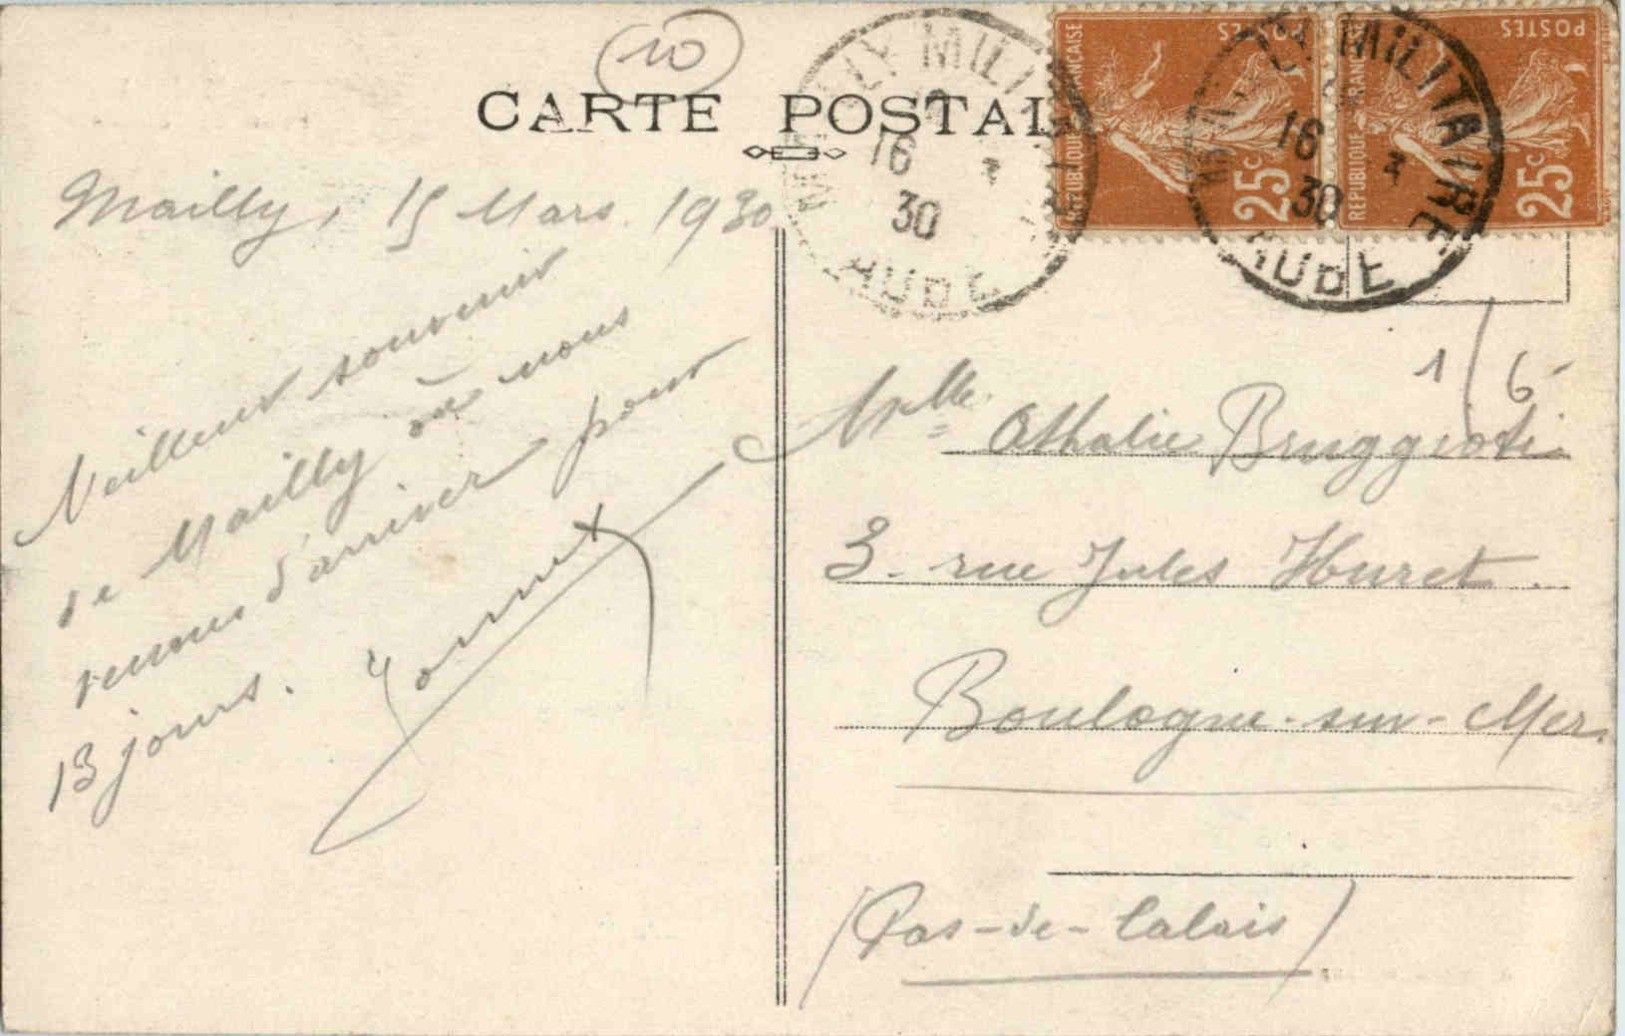 10
CARTE POSTALE
MAILLY MILITAIRE
16 3
30
AUBE
MAILLY MILITAIRE
16 3
30
AUBE
REPUBLIQUE FRANCAISE
POSTES
25c
REPUBLIQUE FRANCAISE
POSTES
25c
Mailly, 15 Mars 1930
Meilleur souvenir
de Mailly où nous
venons d'arriver pour
13 jours.
1/6-
Mlle Athalie
3 rue Jules Huret.
Boulogne-sur-Mer.
(Pas-de-Calais)